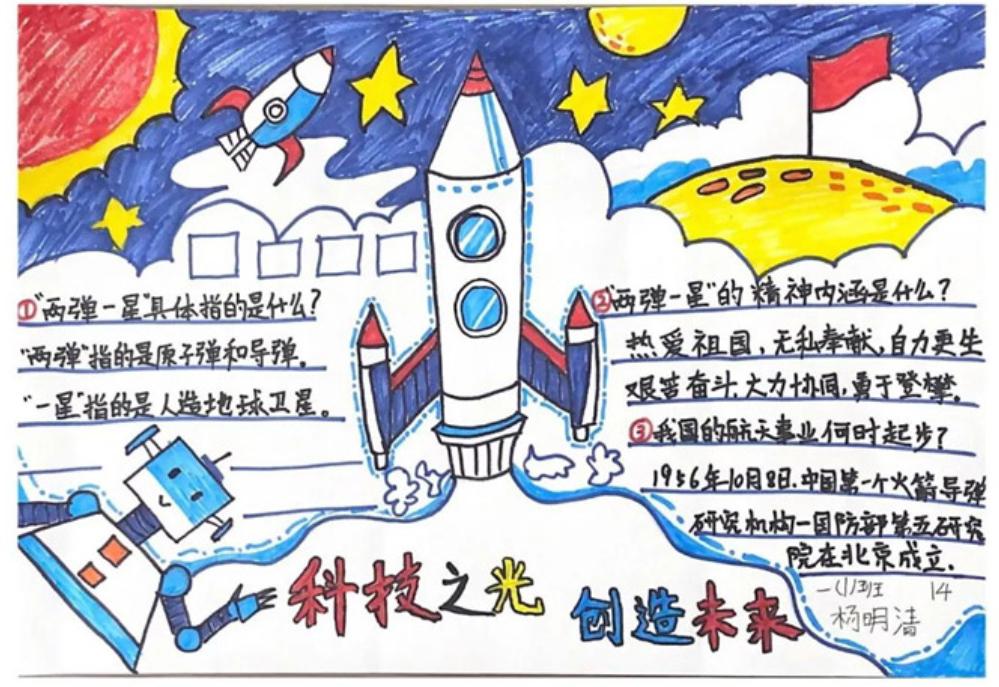 ①“两弹一星”具体指的是什么?
“两弹”指的是原子弹和导弹。
“一星”指的是人造地球卫星。
②“两弹一星”的精神内涵是什么?
热爱祖国，无私奉献，自力更生
艰苦奋斗.大力协同，勇于登攀。
③我国的航天事业何时起步?
1956年10月8日.中国第一个火箭导弹
研究机构—国防部第五研究
院在北京成立.
科技之光
创造未来
一(1)班 14
杨明清